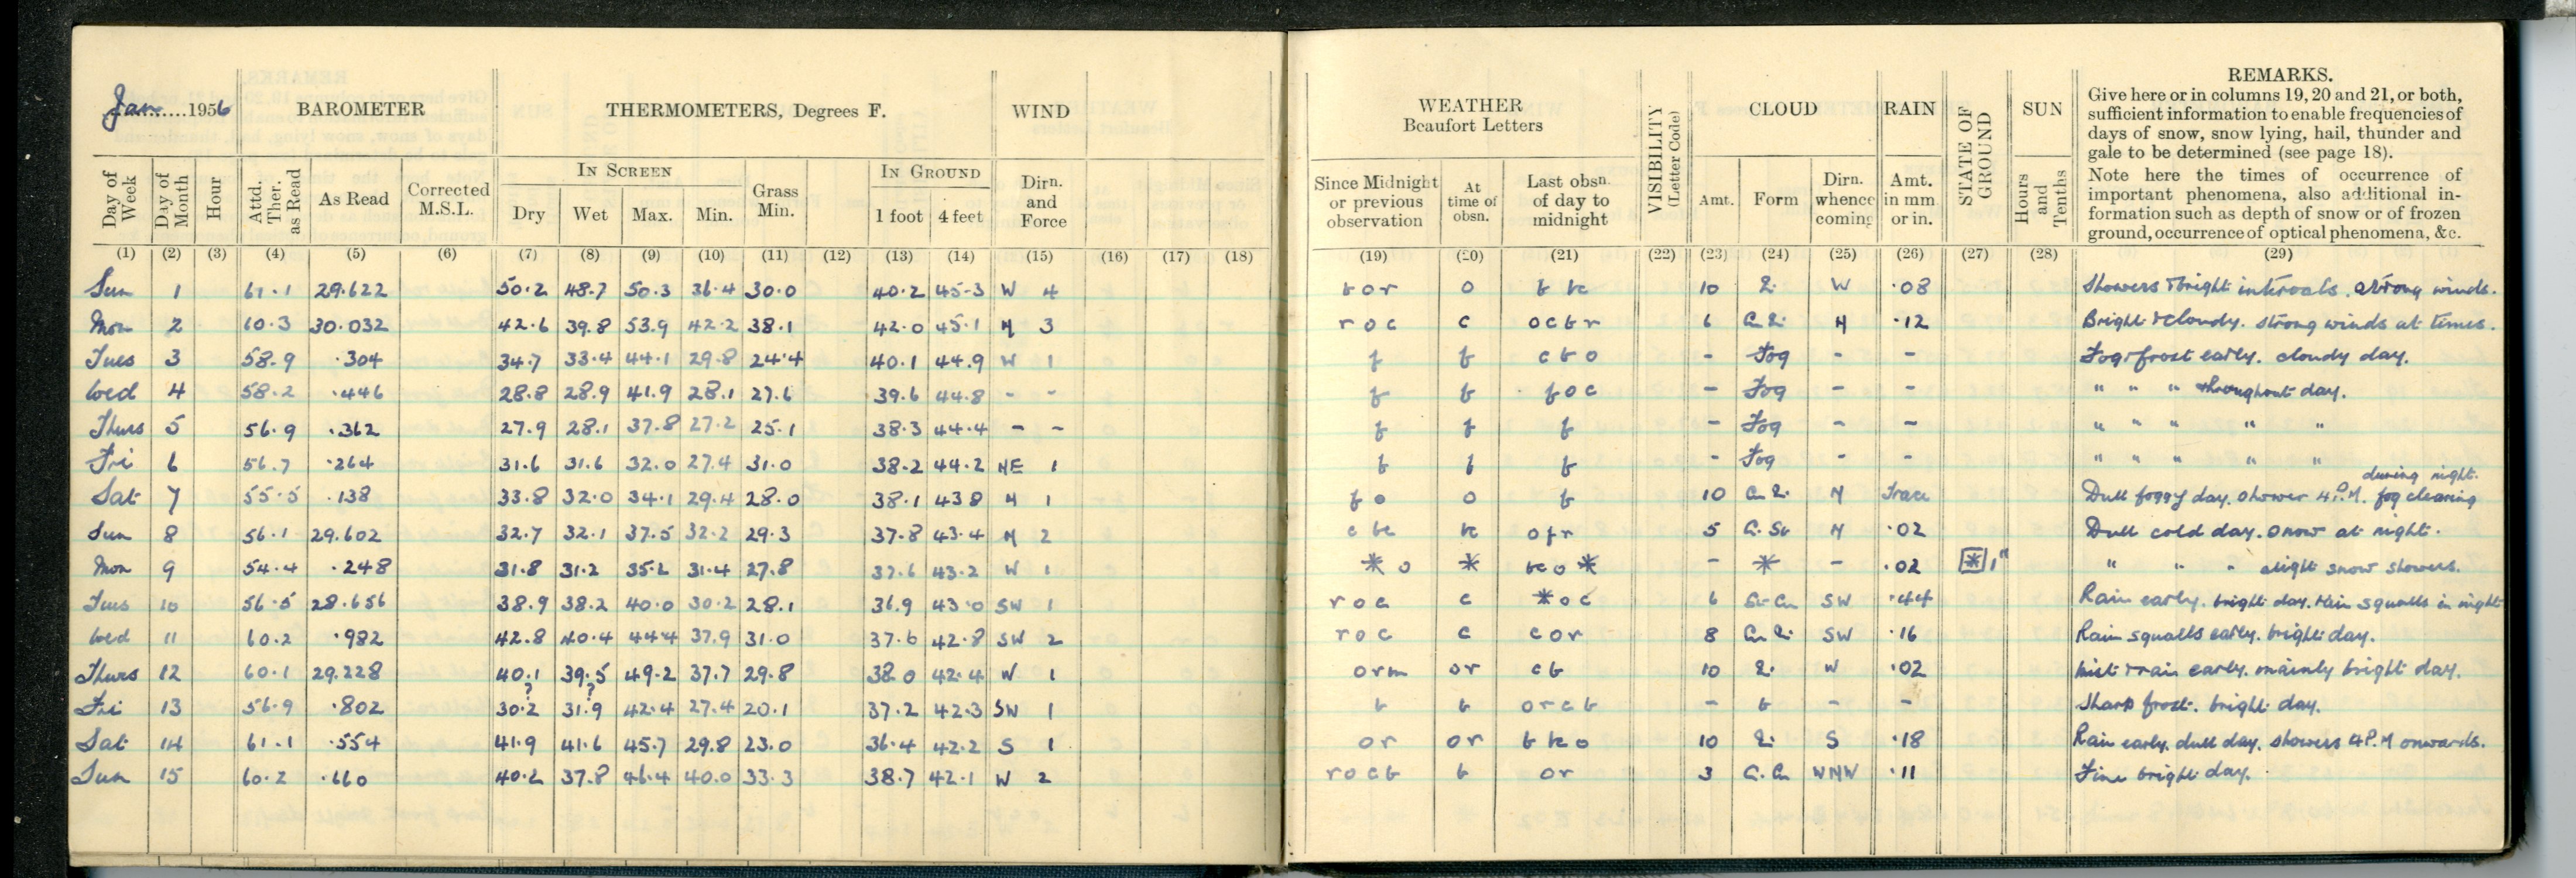 Jan 1956 BAROMETER THERMOMETERS, Degrees F. WIND
IN SCREEN IN GROUND
Day of Week Day of Month Hour Attd. Ther. as Read As Read Corrected M.S.L. Dry Wet Max. Min. Grass Min. 1 foot 4 feet Dirn. and Force
(1) (2) (3) (4) (5) (6) (7) (8) (9) (10) (11) (12) (13) (14) (15) (16) (17) (18)
Sun 1 61.1 29.622 50.2 48.7 50.3 36.4 30.0 40.2 45.3 W 4
Mon 2 60.3 30.032 42.6 39.8 53.9 42.2 38.1 42.0 45.1 N 3
Tues 3 58.9 .304 34.7 33.4 44.1 29.8 24.4 40.1 44.9 W 1
Wed 4 58.2 .446 28.8 28.9 41.9 28.1 27.6 39.6 44.8 - -
Thurs 5 56.9 .362 27.9 28.1 37.8 27.2 25.1 38.3 44.4 - -
Fri 6 56.7 .264 31.6 31.6 32.0 27.4 31.0 38.2 44.2 NE 1
Sat 7 55.5 .138 33.8 32.0 34.1 29.4 28.0 38.1 43 8 N 1
Sun 8 56.1 29.602 32.7 32.1 37.5 32.2 29.3 37.8 43.4 N 2
Mon 9 54.4 .248 31.8 31.2 35.2 31.4 27.8 37.6 43.2 W 1
Tues 10 56.5 28.656 38.9 38.2 40.0 30.2 28.1 36.9 43.0 SW 1
Wed 11 60.2 .982 42.8 40.4 44.4 37.9 31.0 37.6 42.8 SW 2
Thurs 12 60.1 29.228 40.1 39.5 49.2 37.7 29.8 38.0 42.4 W 1
? ?
Fri 13 56.9 .802 30.2 31.9 42.4 27.4 20.1 37.2 42.3 SW 1
Sat 14 61.1 .554 41.9 41.6 45.7 29.8 23.0 36.4 42.2 S 1
Sun 15 60.2 .660 40.2 37.8 46.4 40.0 33.3 38.7 42.1 W 2
WEATHER
Beaufort Letters
VISIBILITY (Letter Code) CLOUD RAIN STATE OF GROUND SUN
REMARKS.
Give here or in columns 19, 20 and 21, or both,
sufficient information to enable frequencies of
days of snow, snow lying, hail, thunder and
gale to be determined (see page 18).
Note here the times of occurrence of
important phenomena, also additional in-
formation such as depth of snow or of frozen
ground, occurrence of optical phenomena, &c.
Since Midnight or previous observation At time of obsn. Last obsn. of day to midnight Amt. Form Dirn. whence coming Amt. in mm or in. Hours and Tenths
(19) (20) (21) (22) (23) (24) (25) (26) (27) (28) (29)
b o r o 10 W .08 Showers & bright intervals. Strong winds.
r o c c o c b r 6 N .12 Bright & cloudy. Strong winds at times.
f f c b o - Fog - - Fog & frost early. cloudy day.
f f f o c - Fog - - " " " throughout day.
f f f - Fog - - " " " " "
f f f - Fog - - " " " " "
f o o f 10 N Trace Dull foggy day. Shower 4P.M. fog clearing during night.
c bc bc 5 N .02 Dull cold day. Snow at night.
* o * bc o * - * - .02 * 1" " " " slight snow showers.
r o c c * o c 6 SW .44 Rain early. bright day. Rain squalls in night
r o c c c o r 8 SW .16 Rain squalls early. bright day.
o r m o r c b 10 W .02 Mist & rain early. mainly bright day.
b b o r c b - b - - Sharp frost. bright day.
o r o r b bc o 10 S .18 Rain early. dull day. Showers 4P.M onwards.
r o c b b o r 3 WNW .11 Fine bright day.